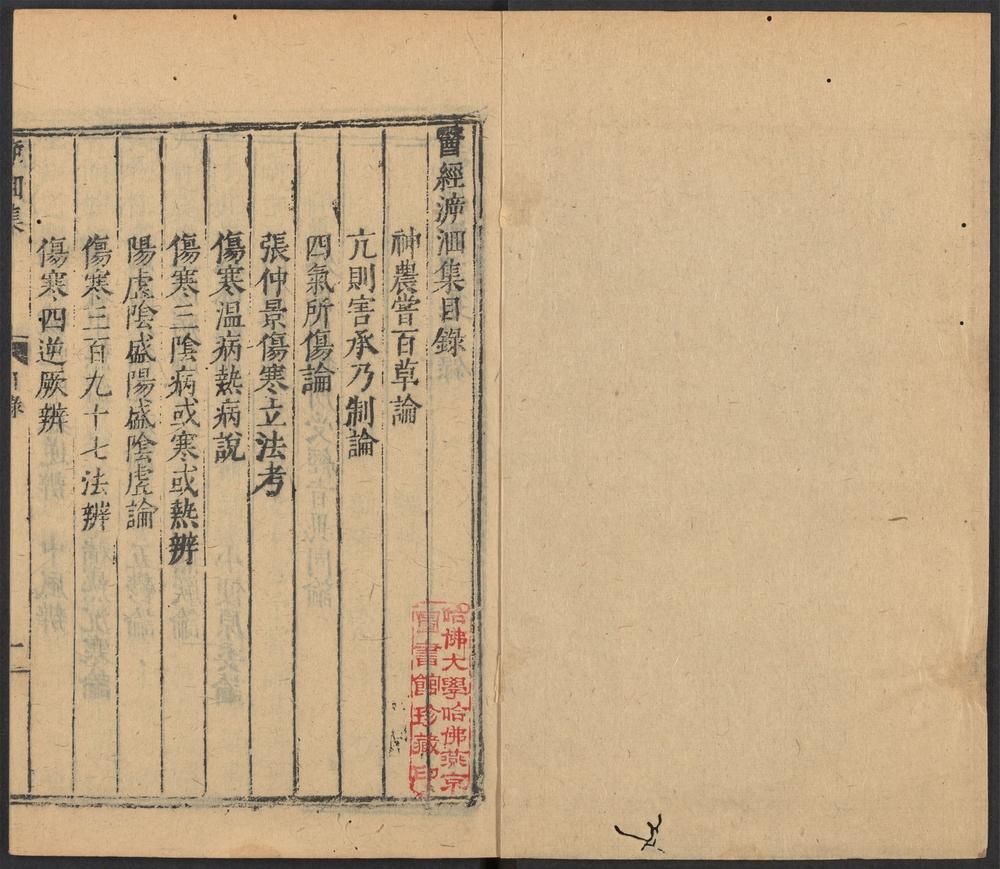 醫經溯洄集目錄
神農嘗百草論
亢則害承乃制論
四氣所傷論
張仲景傷寒立法考
傷寒温病熱病說
傷寒三陰病或寒或熱辨
陽虛陰盛陽盛陰虛論
傷寒三百九十七法辨
傷寒四逆厥辨
洄集
目錄
一
哈佛大學哈佛燕京
圖書館珍藏印